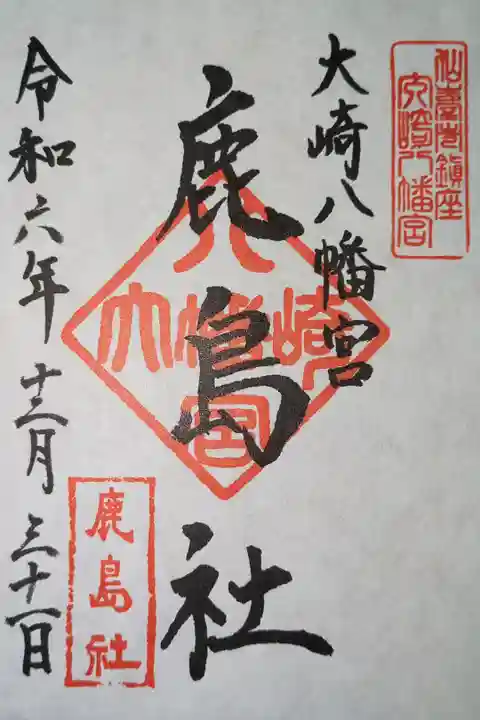 仙臺市鎮座
大崎八幡宮
大崎八幡宮
鹿島社
八
大幡崎
宮
鹿島社
令和六年十二月三十一日